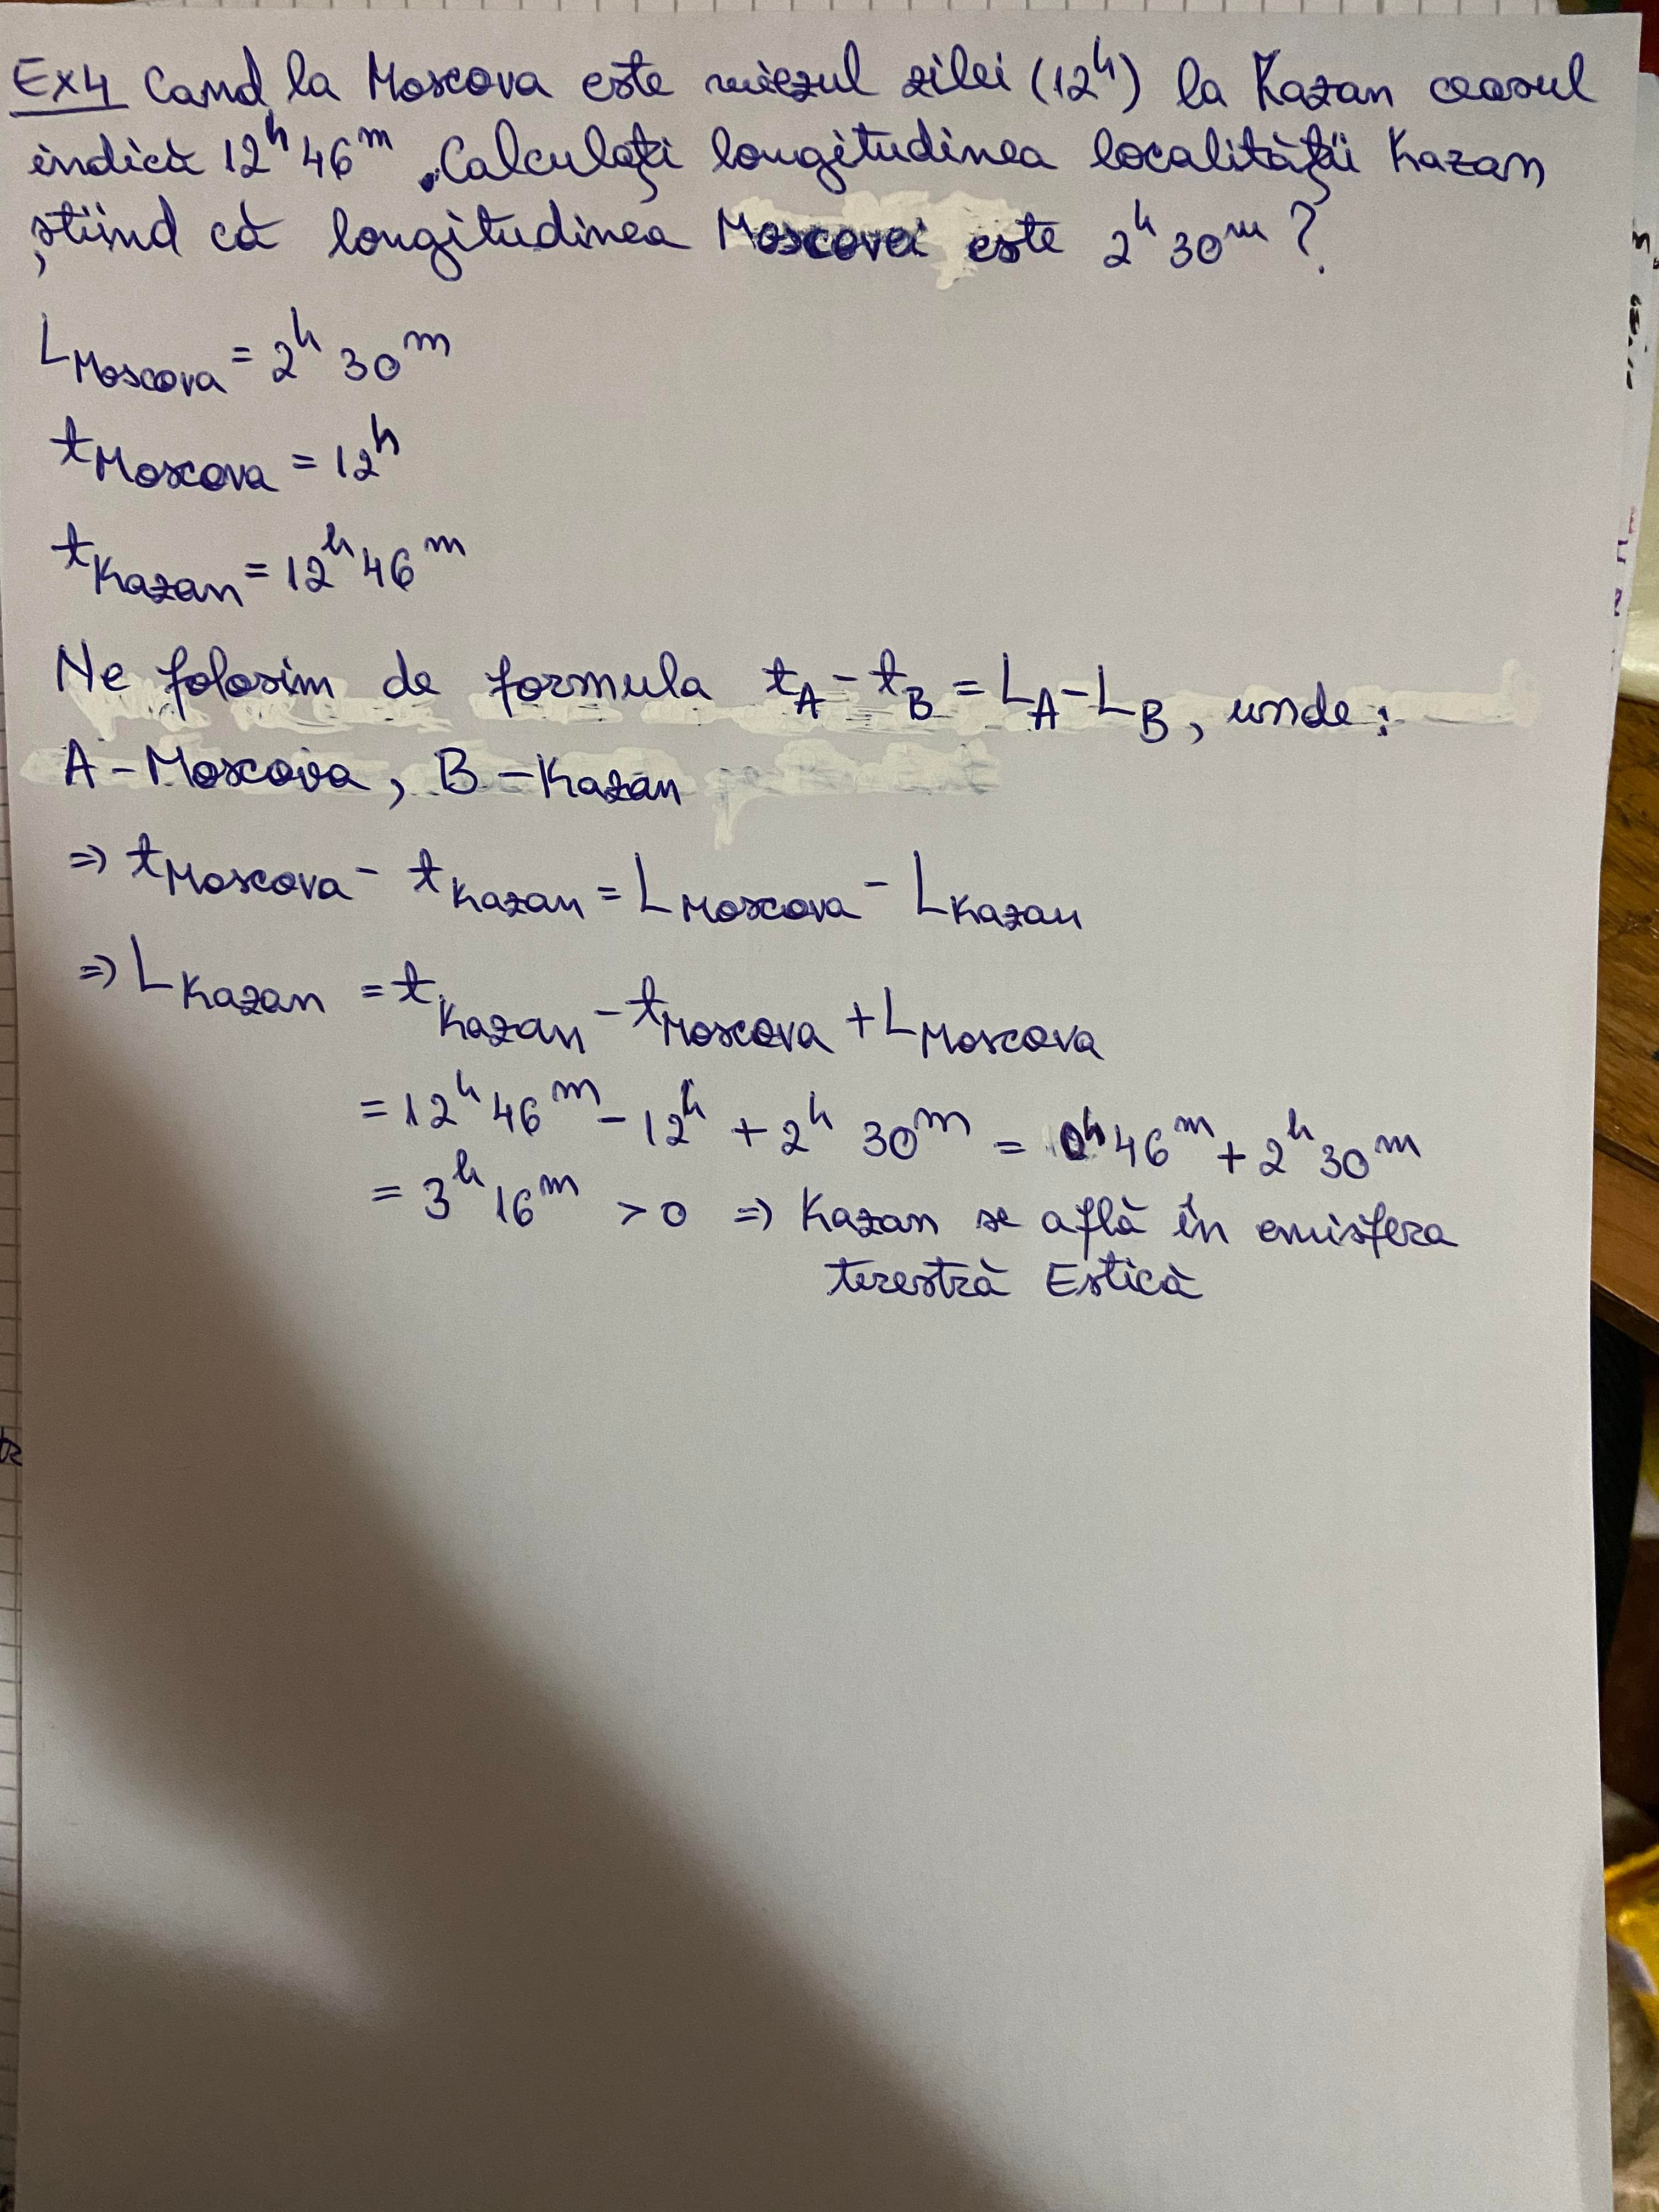 Ex4 Cand la Moscova este miezul zilei (12^h) la Kazan ceasul
indică 12^h 46^m. Calculați longitudinea localității Kazan
știind că longitudinea Moscovei este 2^h 30^m?
L_Moscova = 2^h 30^m
t_Moscova = 12^h
t_Kazan = 12^h 46^m
Ne folosim de formula t_A - t_B = L_A - L_B, unde:
A - Moscova, B - Kazan
=> t_Moscova - t_Kazan = L_Moscova - L_Kazan
=> L_Kazan = t_Kazan - t_Moscova + L_Moscova
= 12^h 46^m - 12^h + 2^h 30^m = 0^h 46^m + 2^h 30^m
= 3^h 16^m > 0 => Kazan se află în emisfera
terestră Estică